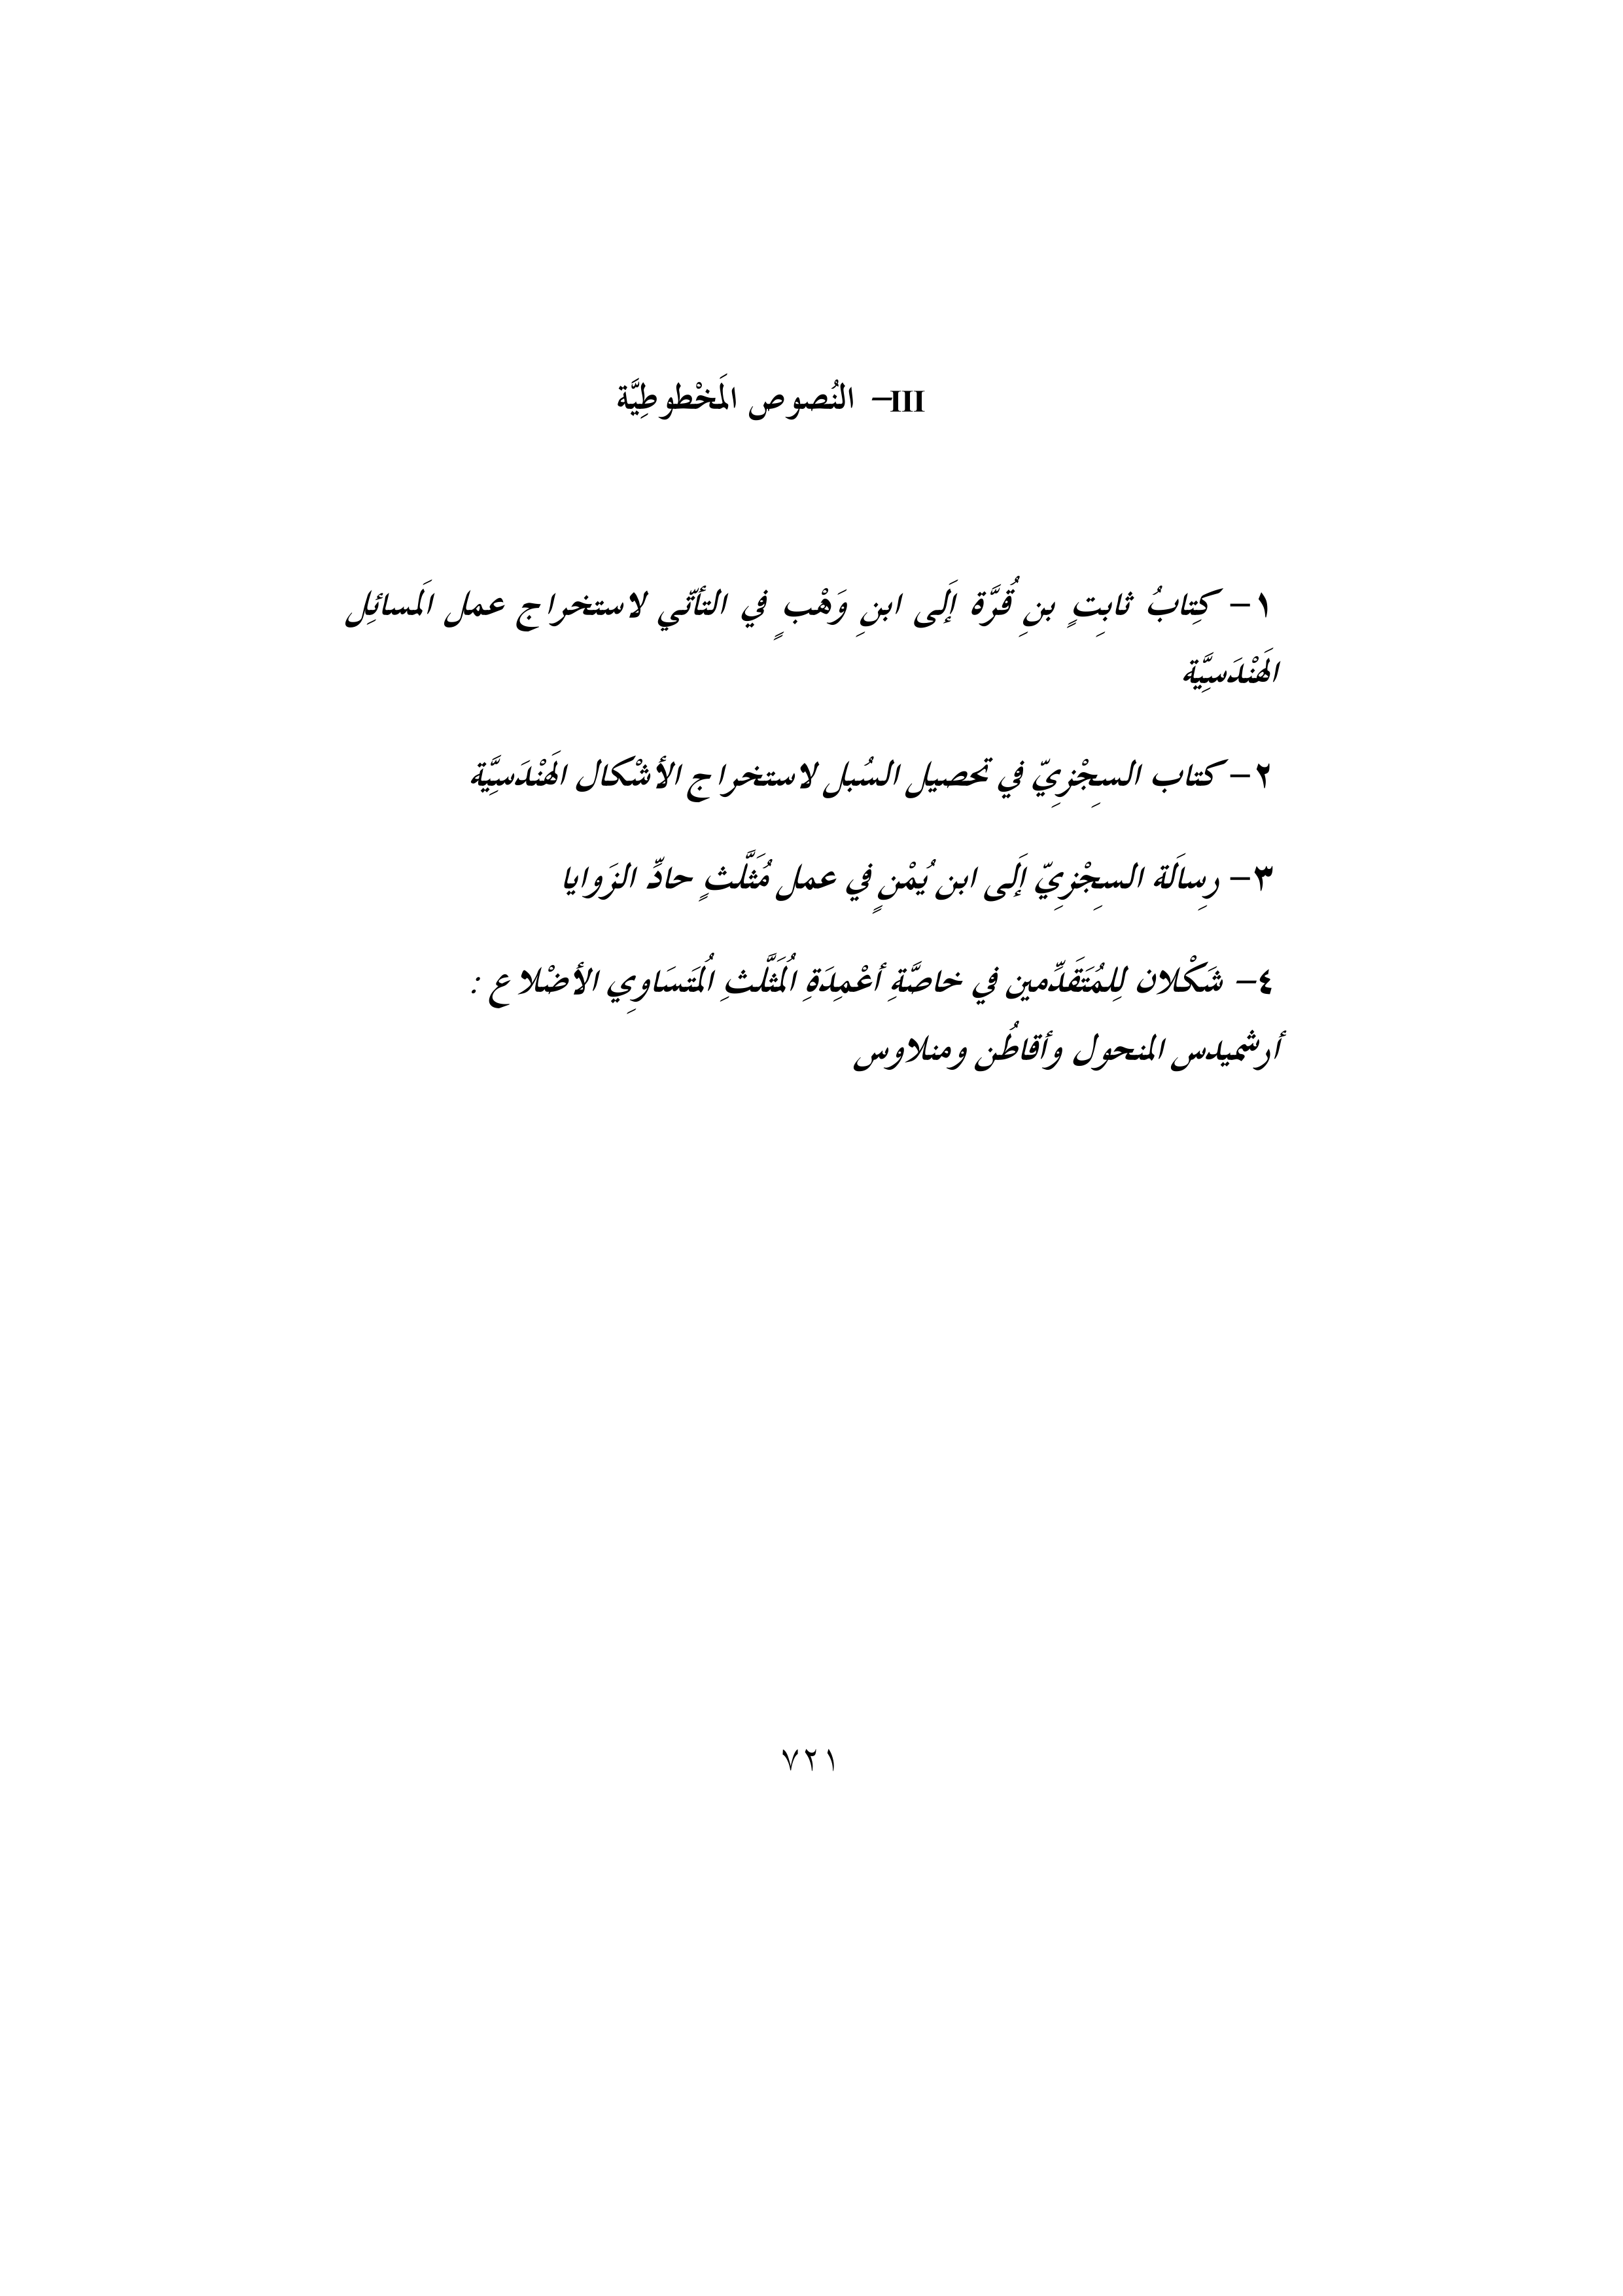 III– النُصوص المَخْطوطِيَّة
١– كِتابُ ثابِتٍ بنِ قُرَّة إلَى ابنِ وَهْبٍ في التأتّي لاستخراج عمل المَسائِل
الهَنْدَسِيَّة
٢– كتاب السِجْزِيّ في تحصيل السُبل لاستخراج الأشْكال الهَنْدَسِيَّة
٣– رِسالَة السِجْزِيّ إلَى ابن يُمْنٍ في عمل مُثَلَّثٍ حادِّ الزَوايا
٤– شَكْلان لِلمُتَقَدِّمين في خاصَّةِ أعْمِدَةِ المُثَلَّثِ المُتَسَاوِي الأضْلاع :
أرشميدس المنحول وأقاطُن ومنلاوس
٧٢١